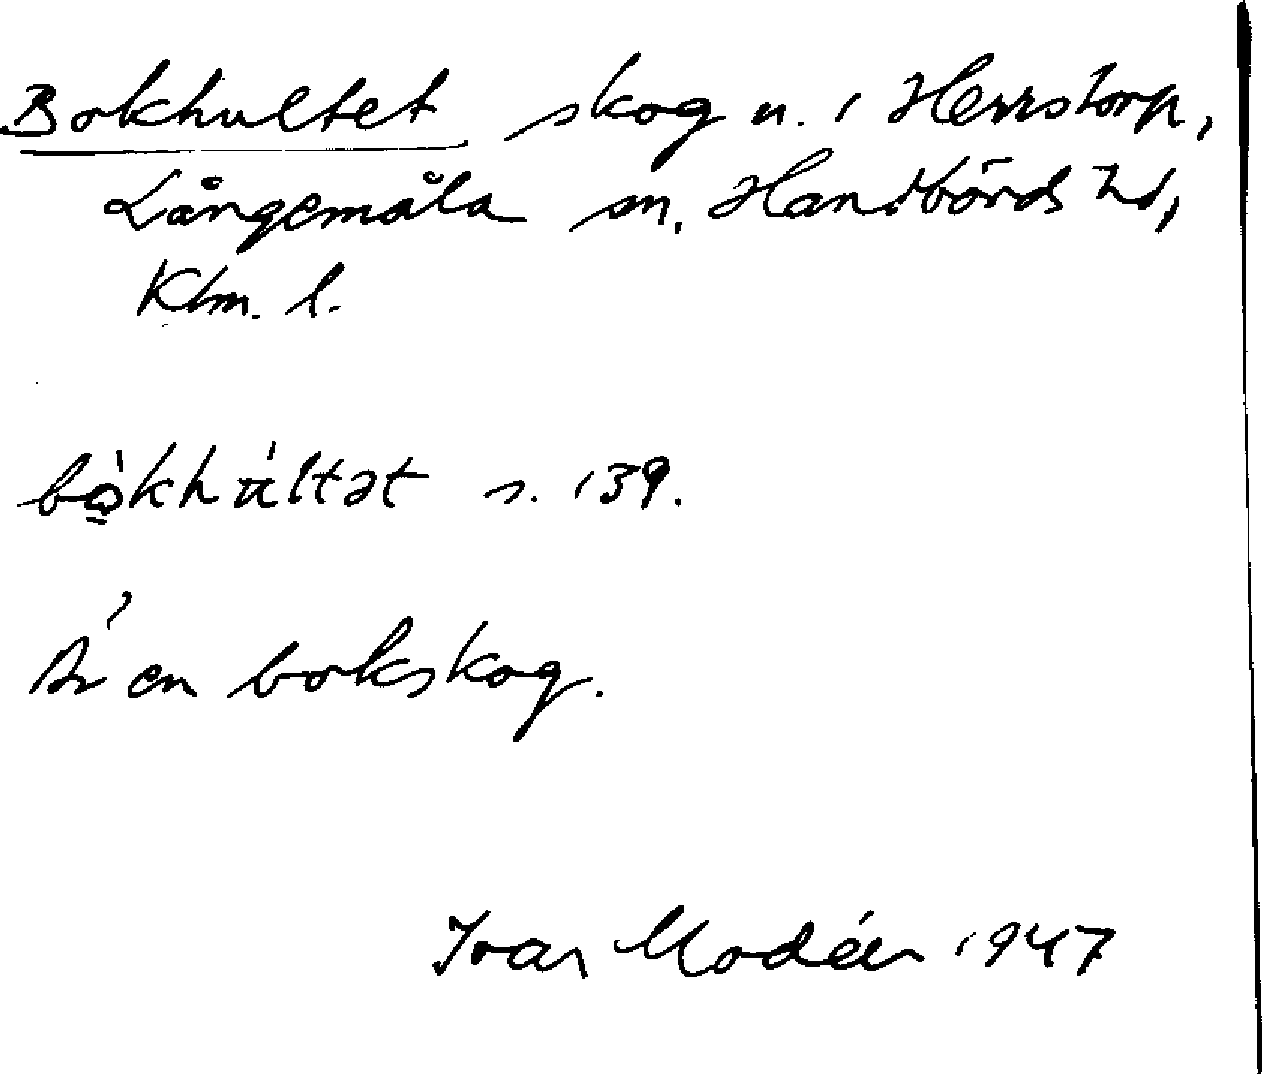 Bokhultet skog n. i Herrstorp,
Långemåla sn. Handbörds hd,
Klm. l.
bo̤̍khu̍ltət s. 139.
Är en bokskog.
Ivar Modéer 1947